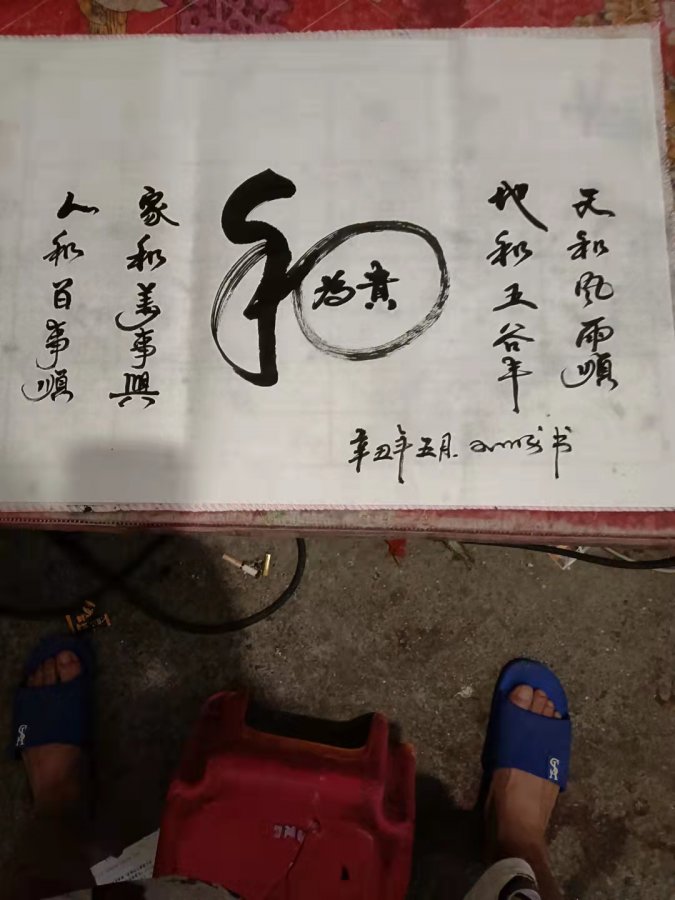 天和风雨順
地和五谷丰
和
为贵
家和美事興
人和百事順
辛丑年五月
书